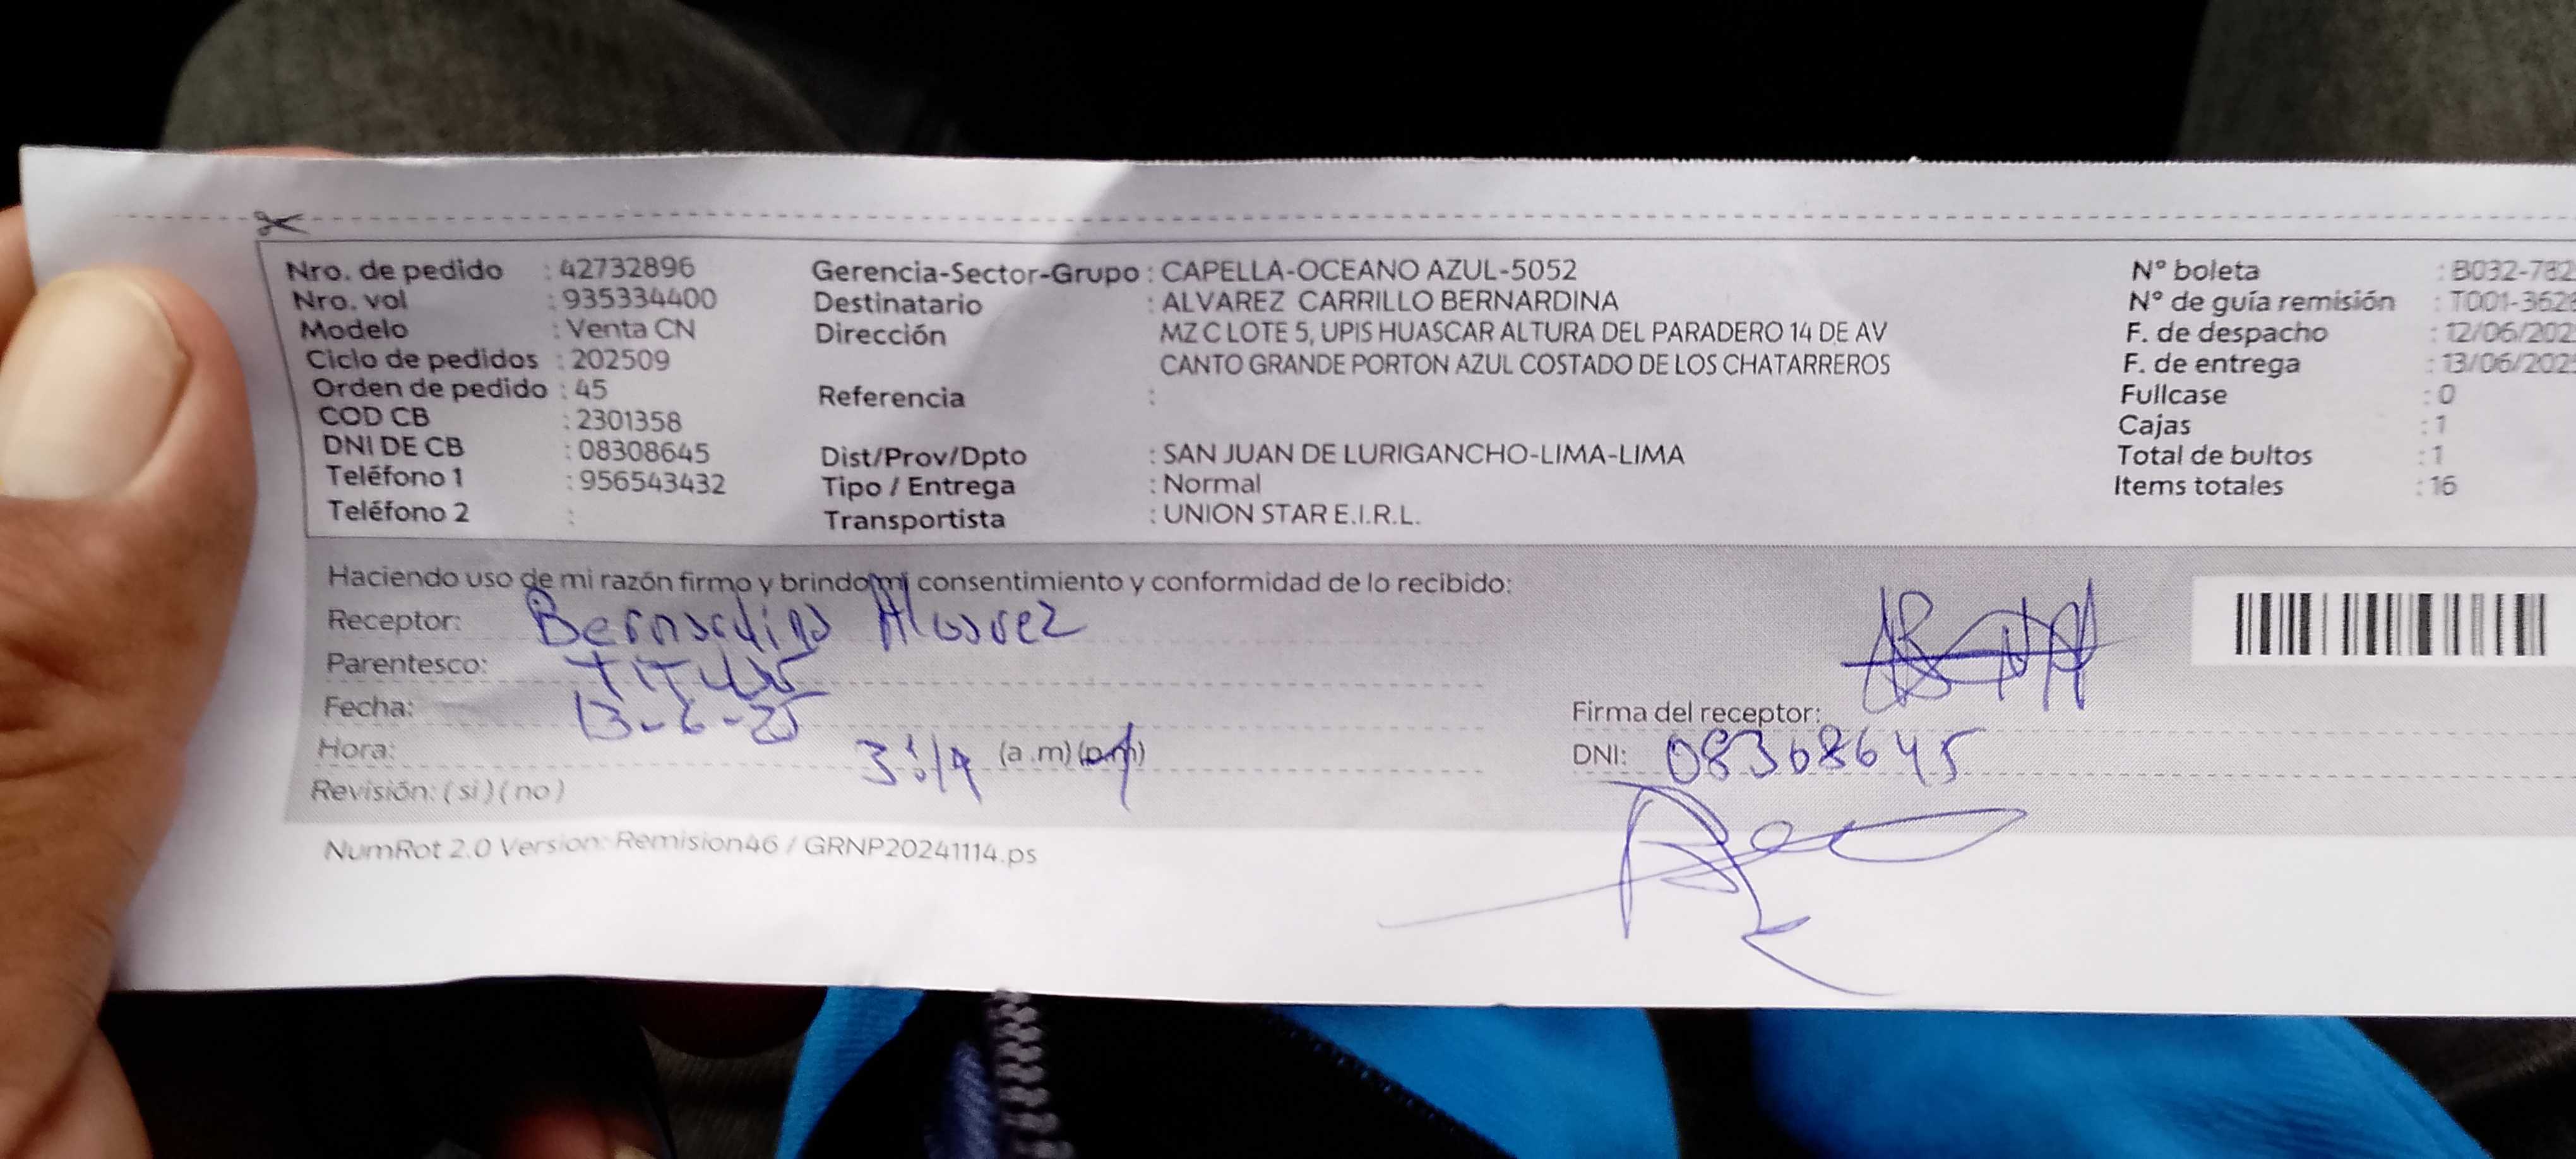 Nro. de pedido : 42732896
Nro. vol : 935334400
Modelo : Venta CN
Ciclo de pedidos : 202509
Orden de pedido : 45
COD CB : 2301358
DNI DE CB : 08308645
Teléfono 1 : 956543432
Teléfono 2 :
Gerencia-Sector-Grupo : CAPELLA-OCEANO AZUL-5052
Destinatario : ALVAREZ CARRILLO BERNARDINA
Dirección MZ C LOTE 5, UPIS HUASCAR ALTURA DEL PARADERO 14 DE AV
CANTO GRANDE PORTON AZUL COSTADO DE LOS CHATARREROS
Referencia :
Dist/Prov/Dpto : SAN JUAN DE LURIGANCHO-LIMA-LIMA
Tipo / Entrega : Normal
Transportista : UNION STAR E.I.R.L.
N° boleta : B032-782
N° de guía remisión : T001-3628
F. de despacho : 12/06/202
F. de entrega : 13/06/202
Fullcase : 0
Cajas : 1
Total de bultos : 1
Items totales : 16
Haciendo uso de mi razón firmo y brindo mi consentimiento y conformidad de lo recibido:
Receptor: Bernardina Alvarez
Parentesco: TITULAR
Fecha: 13-6-25
Hora: 3:14 (a.m) (p.m)
Revisión: ( si ) ( no )
Firma del receptor:
DNI: 08308645
NumRot 2.0 Version: Remision46 / GRNP20241114.ps